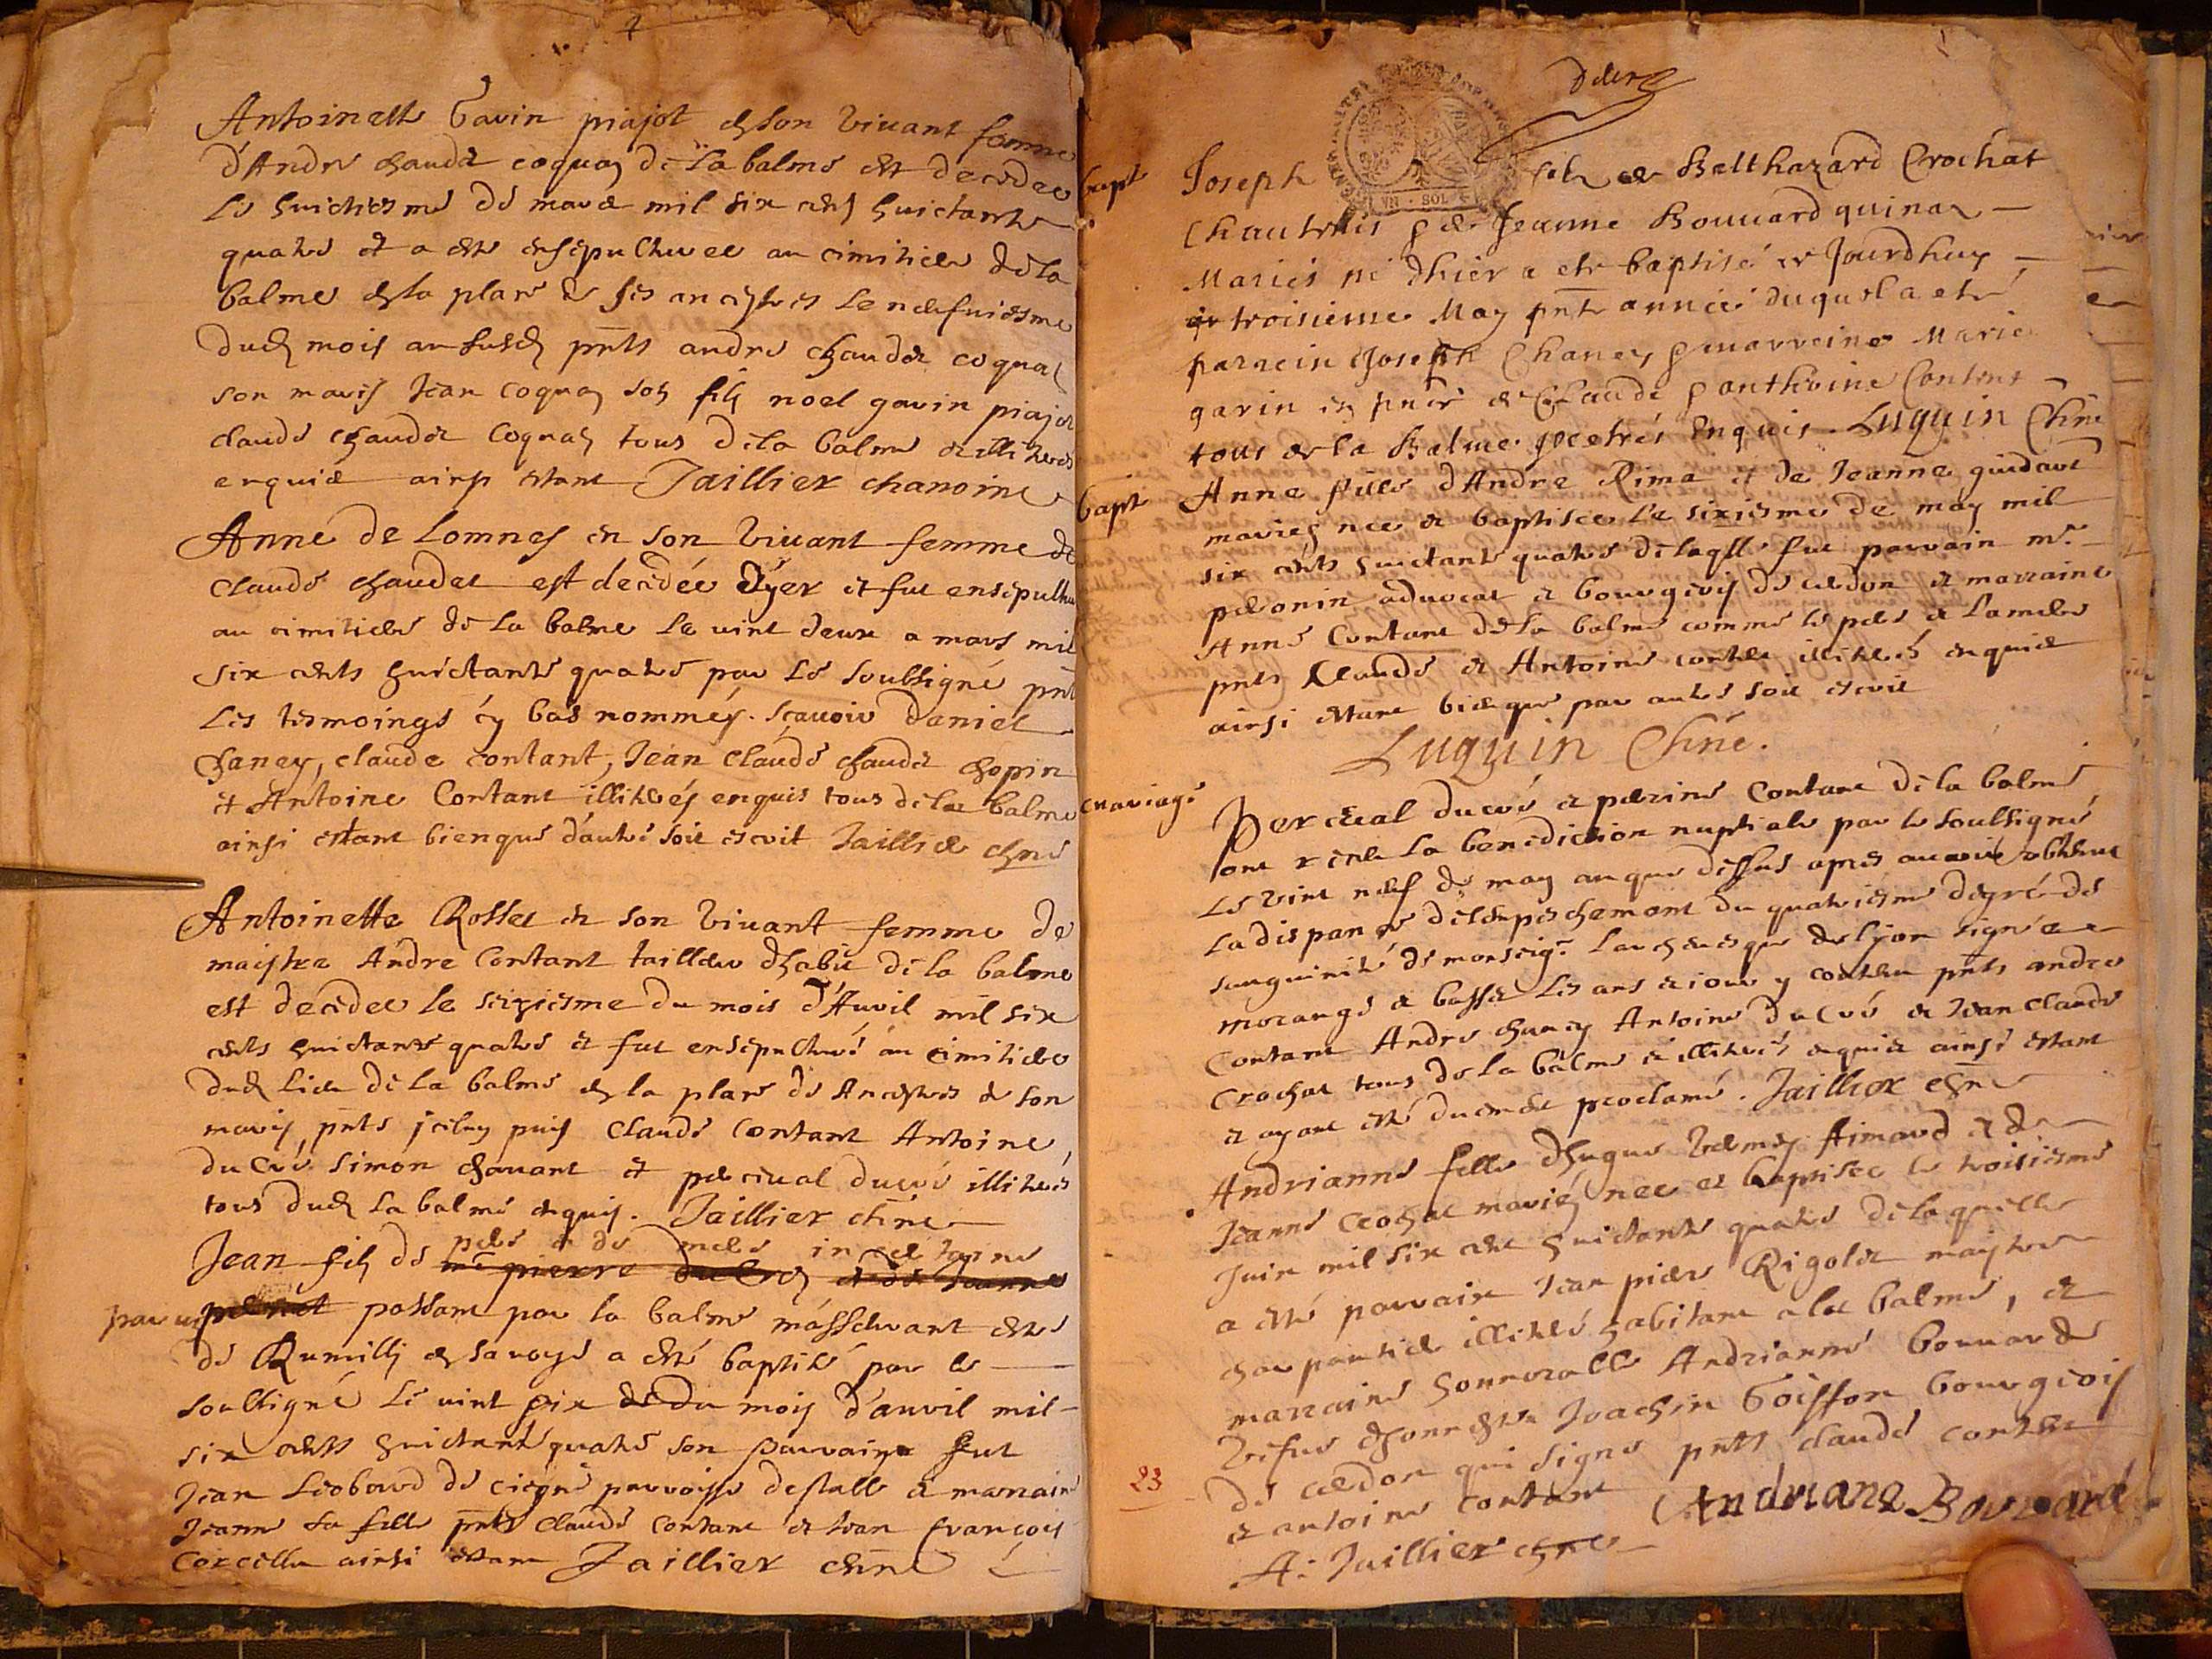 Antoinette Gavin piajot en son vivant femme
d'Andre chaudet coquaz de la balme est decedee
le huictiesme de mars mil six cents huictante
quatre et a este ensepulturee au cimitiere de la
balme en la place de ses ancestres le neufuiesme
dud mois an susd pnts andre chaudet coquaz
son mary Jean coquaz son fils noel gavin piajot
claude chaudet coquaz tous de la balme et illiteres
enquis ainsy estant Jaillier chanoine
Anne de Lomnes en son vivant femme de
claude chaudet est decedée hyer et fut ensepultu
au cimitiere de la balme le vint deux a mars mil
six cents huictante quatre par le soubsigné pnts
les tesmoings cy bas nommés. sçavoir daniel
chaney, claude contant, Jean claude chaudet chopin
et Antoine Contant illiterés enquis tous de la balme
ainsi estant bienque d'autre soit escrit Jaillier chne
Antoinette Rosset en son vivant femme de
maistre André Contant tailleur d'habit de la balme
est decedee le seiziesme du mois d'Avril mil six
cents huictante quatre et fut ensepulturé au cimitiere
dud lieu de la balme en la place de Ancestres de son
mary, pnts iceluy puis Claude Contant Antoine
ducré simon chavant et perceval ducré illiterés
tous dud la balme enquis. Jaillier chne
pere et de mere incertains
Jean fils de me pierre ducré et de Jeanne
par ici passant par la balme
de Rumilly en Savoye a esté baptisé par le
soubsigné le vint six de du mois d'avril mil
six cents huictante quatre son parrain fut
Jean de cicogne parroisse destable et marraine
Jeanne sa fille pnts claude contant et Jean françois
Cercellu ainsi estant Jaillier chne
bapt
Joseph fils de Belthazard Crochat
Chautellis & de Jeanne Bouuard quinaz
Mariés né d'hier a ete baptisé ce Jourdhuy
ce troisieme May pnte année duquel a eté
parrein Joseph Chaney & marreine Marie
garin en pnce de Claude & anthoine Content
tous de la Balme illetrés Enquis. Luquin Chne
bapt
Anne fille d'André Rima et de Jeanne guidaut
mariés nee et baptisee le sixiesme de may mil
six cents huictante quatre de laqlle fut parrain mr
peronin advocat et bourgeois de cerdon et marraine
Anne Contant de la balme comme le pere et la mere
pnts Claude et Antoine contens illiterés enquis
ainsi estant bienque par autre soit escrit
Luquin Chne.
mariage
Perceval ducré et perrine Contant de la balme
ont receu la benediction nuptiale par le soubsigné
le vint neuf de may an que dessus apres avoir obtenu
la dispance de l'empeschement du quatriesme degré de
sanguinité de monseigr l'archevesque de lyon signée
morange et basset les ans et jour y contenu pnts andre
Contant Andre chaney Antoine ducré et Jean Claude
Crochat tous de la balme et illiterés enquis ainsi estant
et ayant esté duement proclamé. Jaillier chne
Andrianne fille d'hugue Aimard et de
Jeanne Crochat mariés nee et baptisee le troisiesme
Juin mil six cent huictante quatre de laquelle
a esté parrain Jean pierre Rigolet maistre
charpantier illiteré habitant a la balme, et
marraine honnorable Andrianne bouvarde
vefue d'honneste Joachin Goiffon bourgeois
de cerdon qui signe pnts claude content
et antoine contant Andriane Bouvard
A. Jaillier chne
23